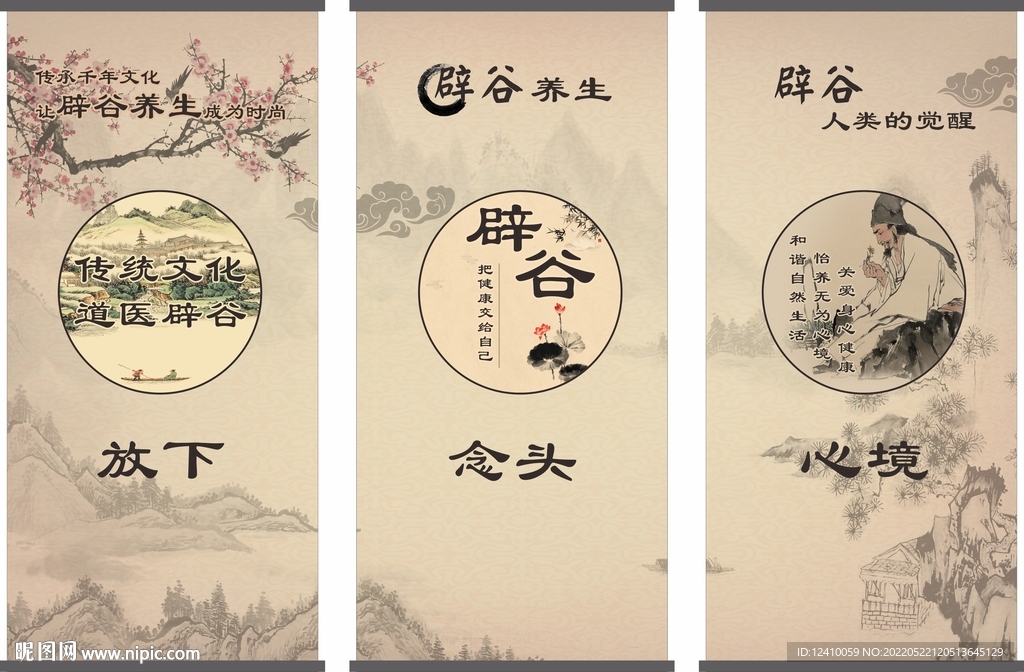 传承千年文化
让辟谷养生成为时尚
传统文化
道医辟谷
放下
辟谷养生
辟谷
把健康交给自己
念头
辟谷
人类的觉醒
和谐自然生活
怡养无为心境
关爱身心健康
心境
昵图网 www.nipic.com
ID:12410059 NO:20220522120513645129